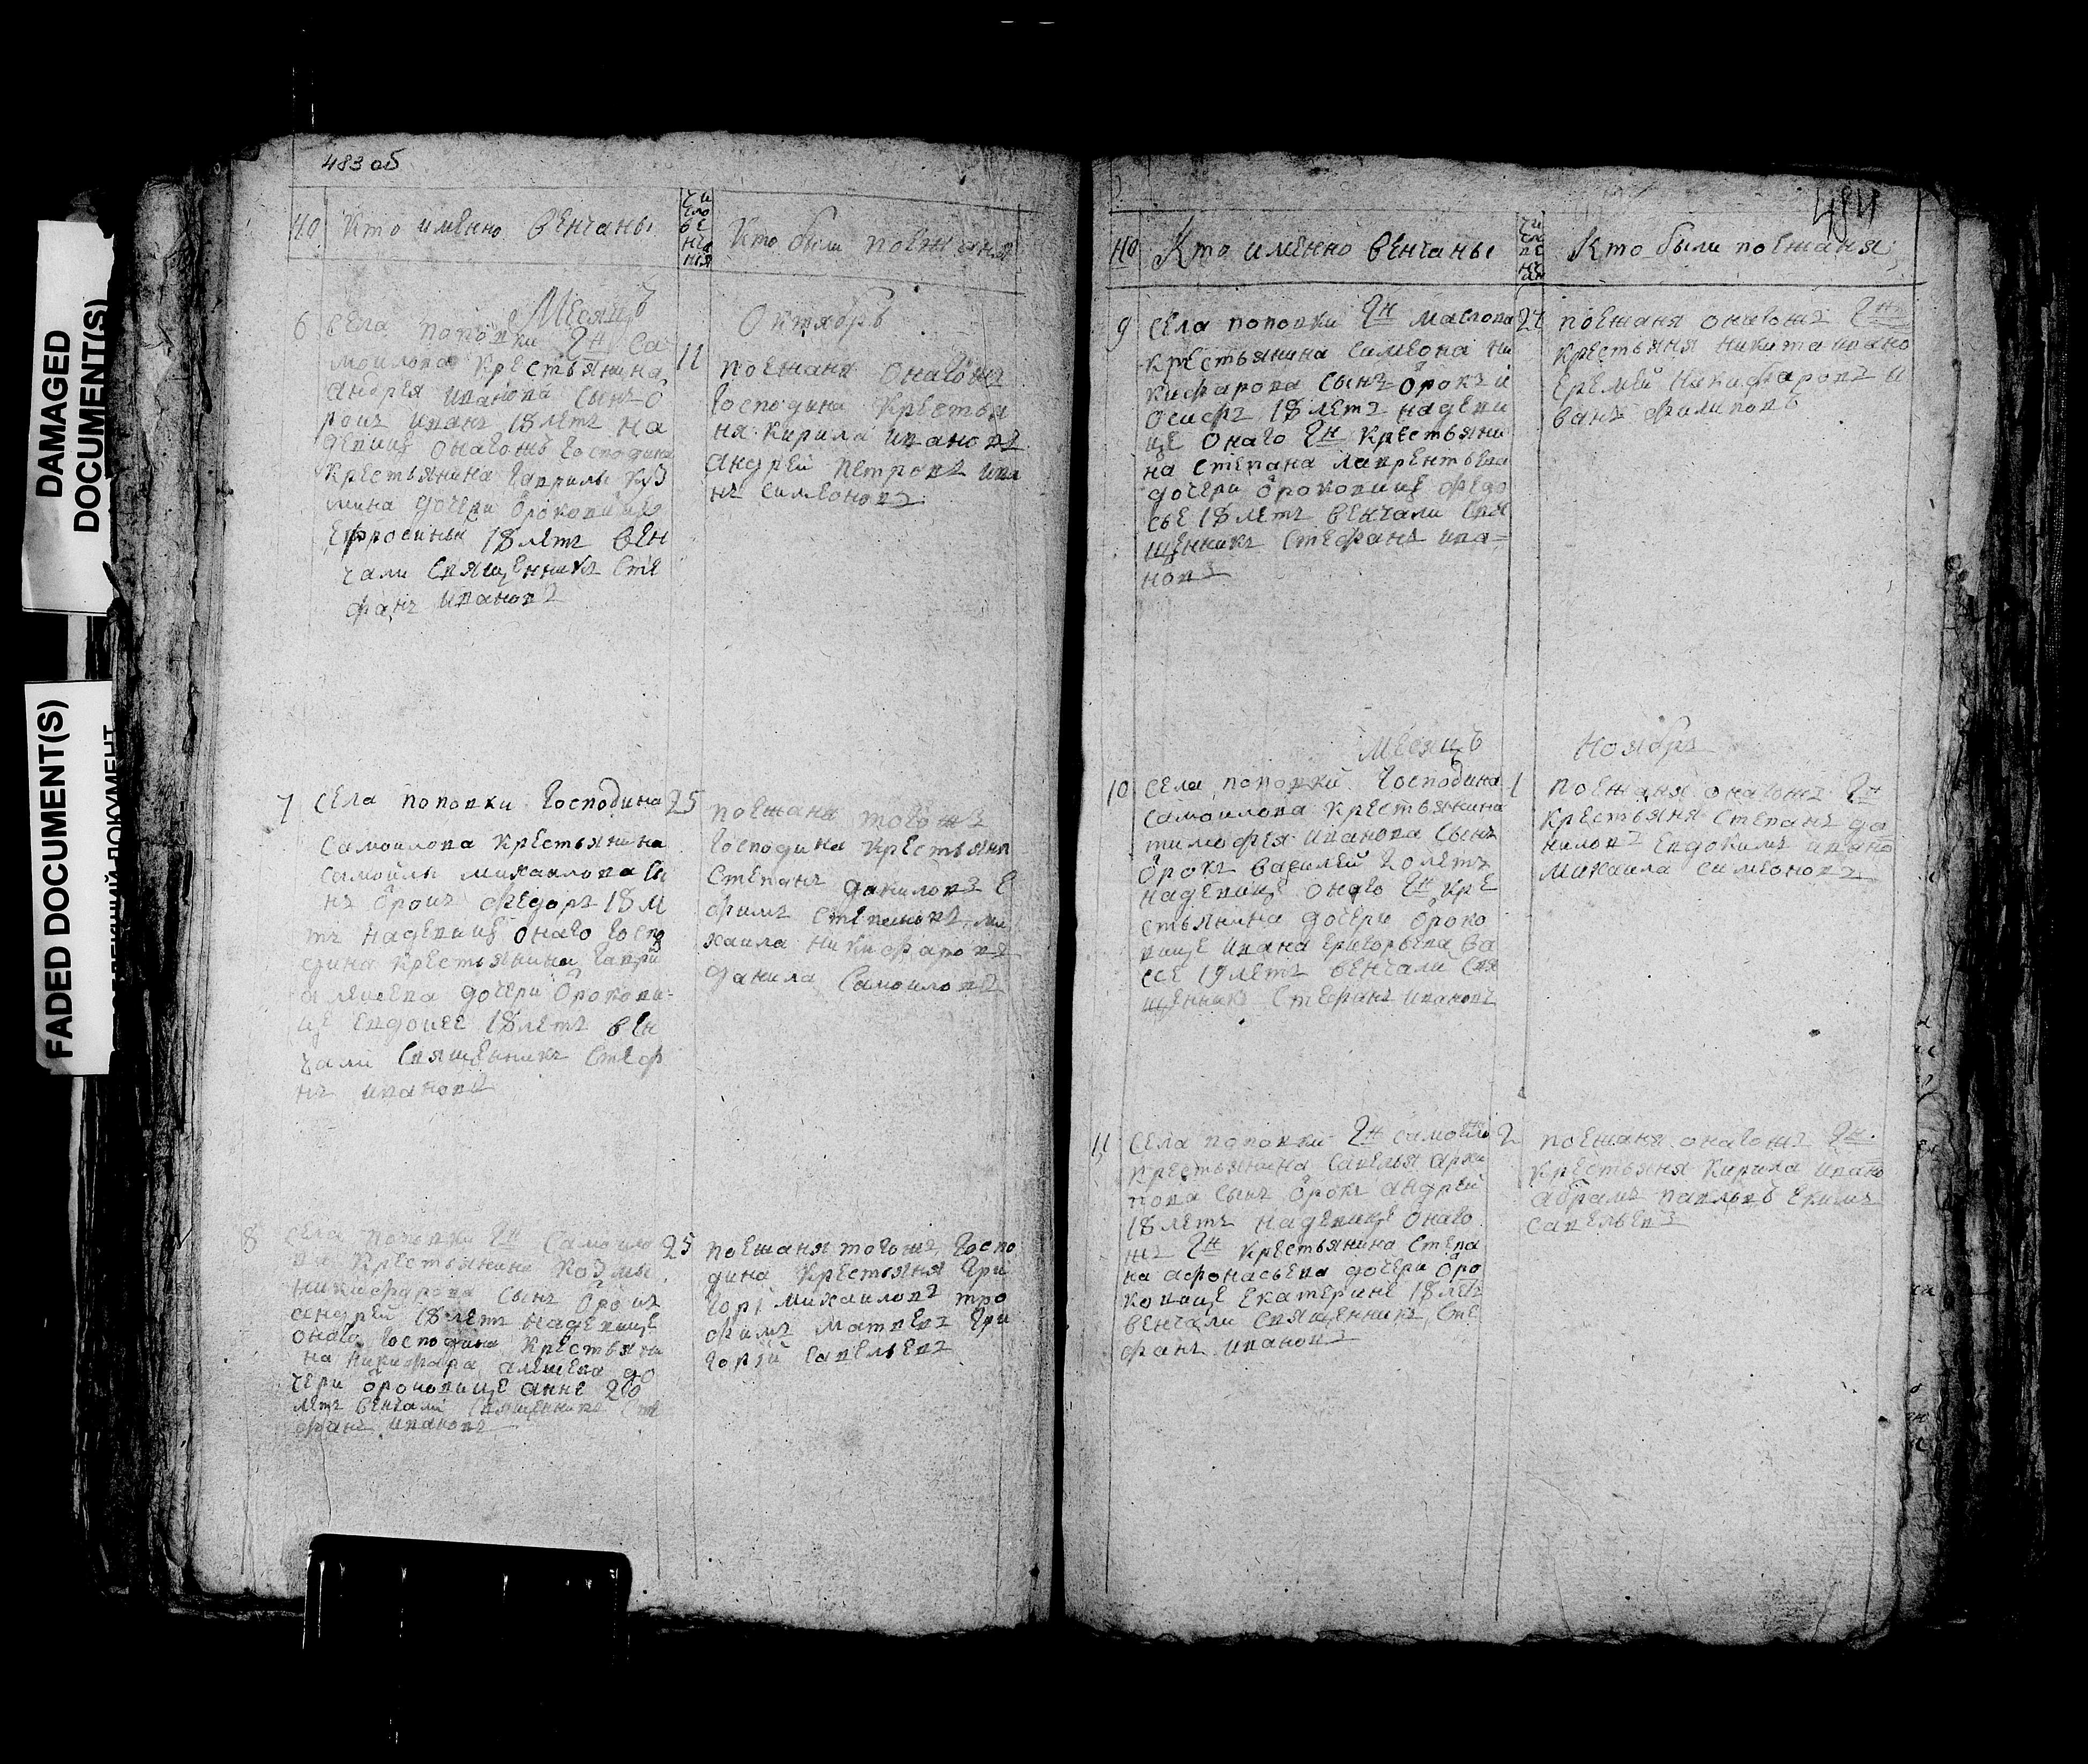 DAMAGED
DOCUMENT(S)
FADED DOCUMENT(S)
483 об
но
Кто именно венчаны
чи
сло
ве
нча
ния
Кто были поежаня
Месяцъ
Октябрь
6
села поповки гн са
моилова крестьянина
андрея иванова сынъ о
рокъ иванъ 18 летъ на
девице онагожъ господина
крестьянина гаврилы куз
мина дочери ороковице
ефросиньи 18 летъ вен
чали священникъ сте
фанъ ивановъ
11
поежаня онагожъ
господина крестья
ня кирила ивановъ
андрей петровъ ива
нъ симеоновъ
7
села поповки господина
самоилова крестьянина
самоилы михаилова сы
нъ орокъ федоръ 18 л
тъ надевице онаго госпо
дина крестьянина гаври
алешева дочери орокови
це евдокее 18 летъ вен
чали священникъ стеф
нъ ивановъ
25
поежаня тогожъ
господина крестьяня
степанъ даниловъ е
фимъ степановъ ми
хаила никифаровъ
данила самоиловъ
8
села поповки гн самоило
ва крестьянина козмы
никифарова сынъ орокъ
андрей 18 летъ надевице
онаго господина крестьяни
на никифара алешева до
чери ороковице анне 20
летъ венчали священникъ сте
фанъ ивановъ
25
поежаня тогожъ госпо
дина крестьяня гри
горі михаиловъ тро
фимъ матвевъ гри
горій савельевъ
484
но
Кто именно венчаны
Кто были поежаня
9
села поповки гн маслова
крестьянина симеона ни
кифарова сынъ орокъ и
осифъ 18 летъ надеви
це онаго гн крестьяни
на степана лаврентьева
дочери ороковице федо
сье 18 летъ венчали свя
щенникъ стефанъ ива=
новъ
поежаня онагожъ гна
крестьяня никита ивано
еремей никифаровъ и
ванъ филиповъ
Месяцъ
Ноябрь
10
села поповки господина
самоилова крестьянина
тимофея иванова сынъ
орокъ василей 20 летъ
надевице онаго гн кре
стьянина дочери ороко
вице ивана григорьева ва
ссе 19 летъ венчали свя
щенникъ стефанъ ивановъ
1
поежаня онагожъ гн
крестьяня степанъ да
ниловъ евдокимъ ивано
михаила симеоновъ
11
села поповки гн самоило
крестьянина савелья архи
пова сынъ орокъ андрей
18 летъ надевице онаго
жъ гн крестьянина степа
на афонасьева дочери оро
ковице екатерине 18 летъ
венчали священникъ сте
фанъ ивановъ
2
поежаня онагожъ гн
крестьяня кирила ивано
абрамъ павловъ екимъ
савельевъ